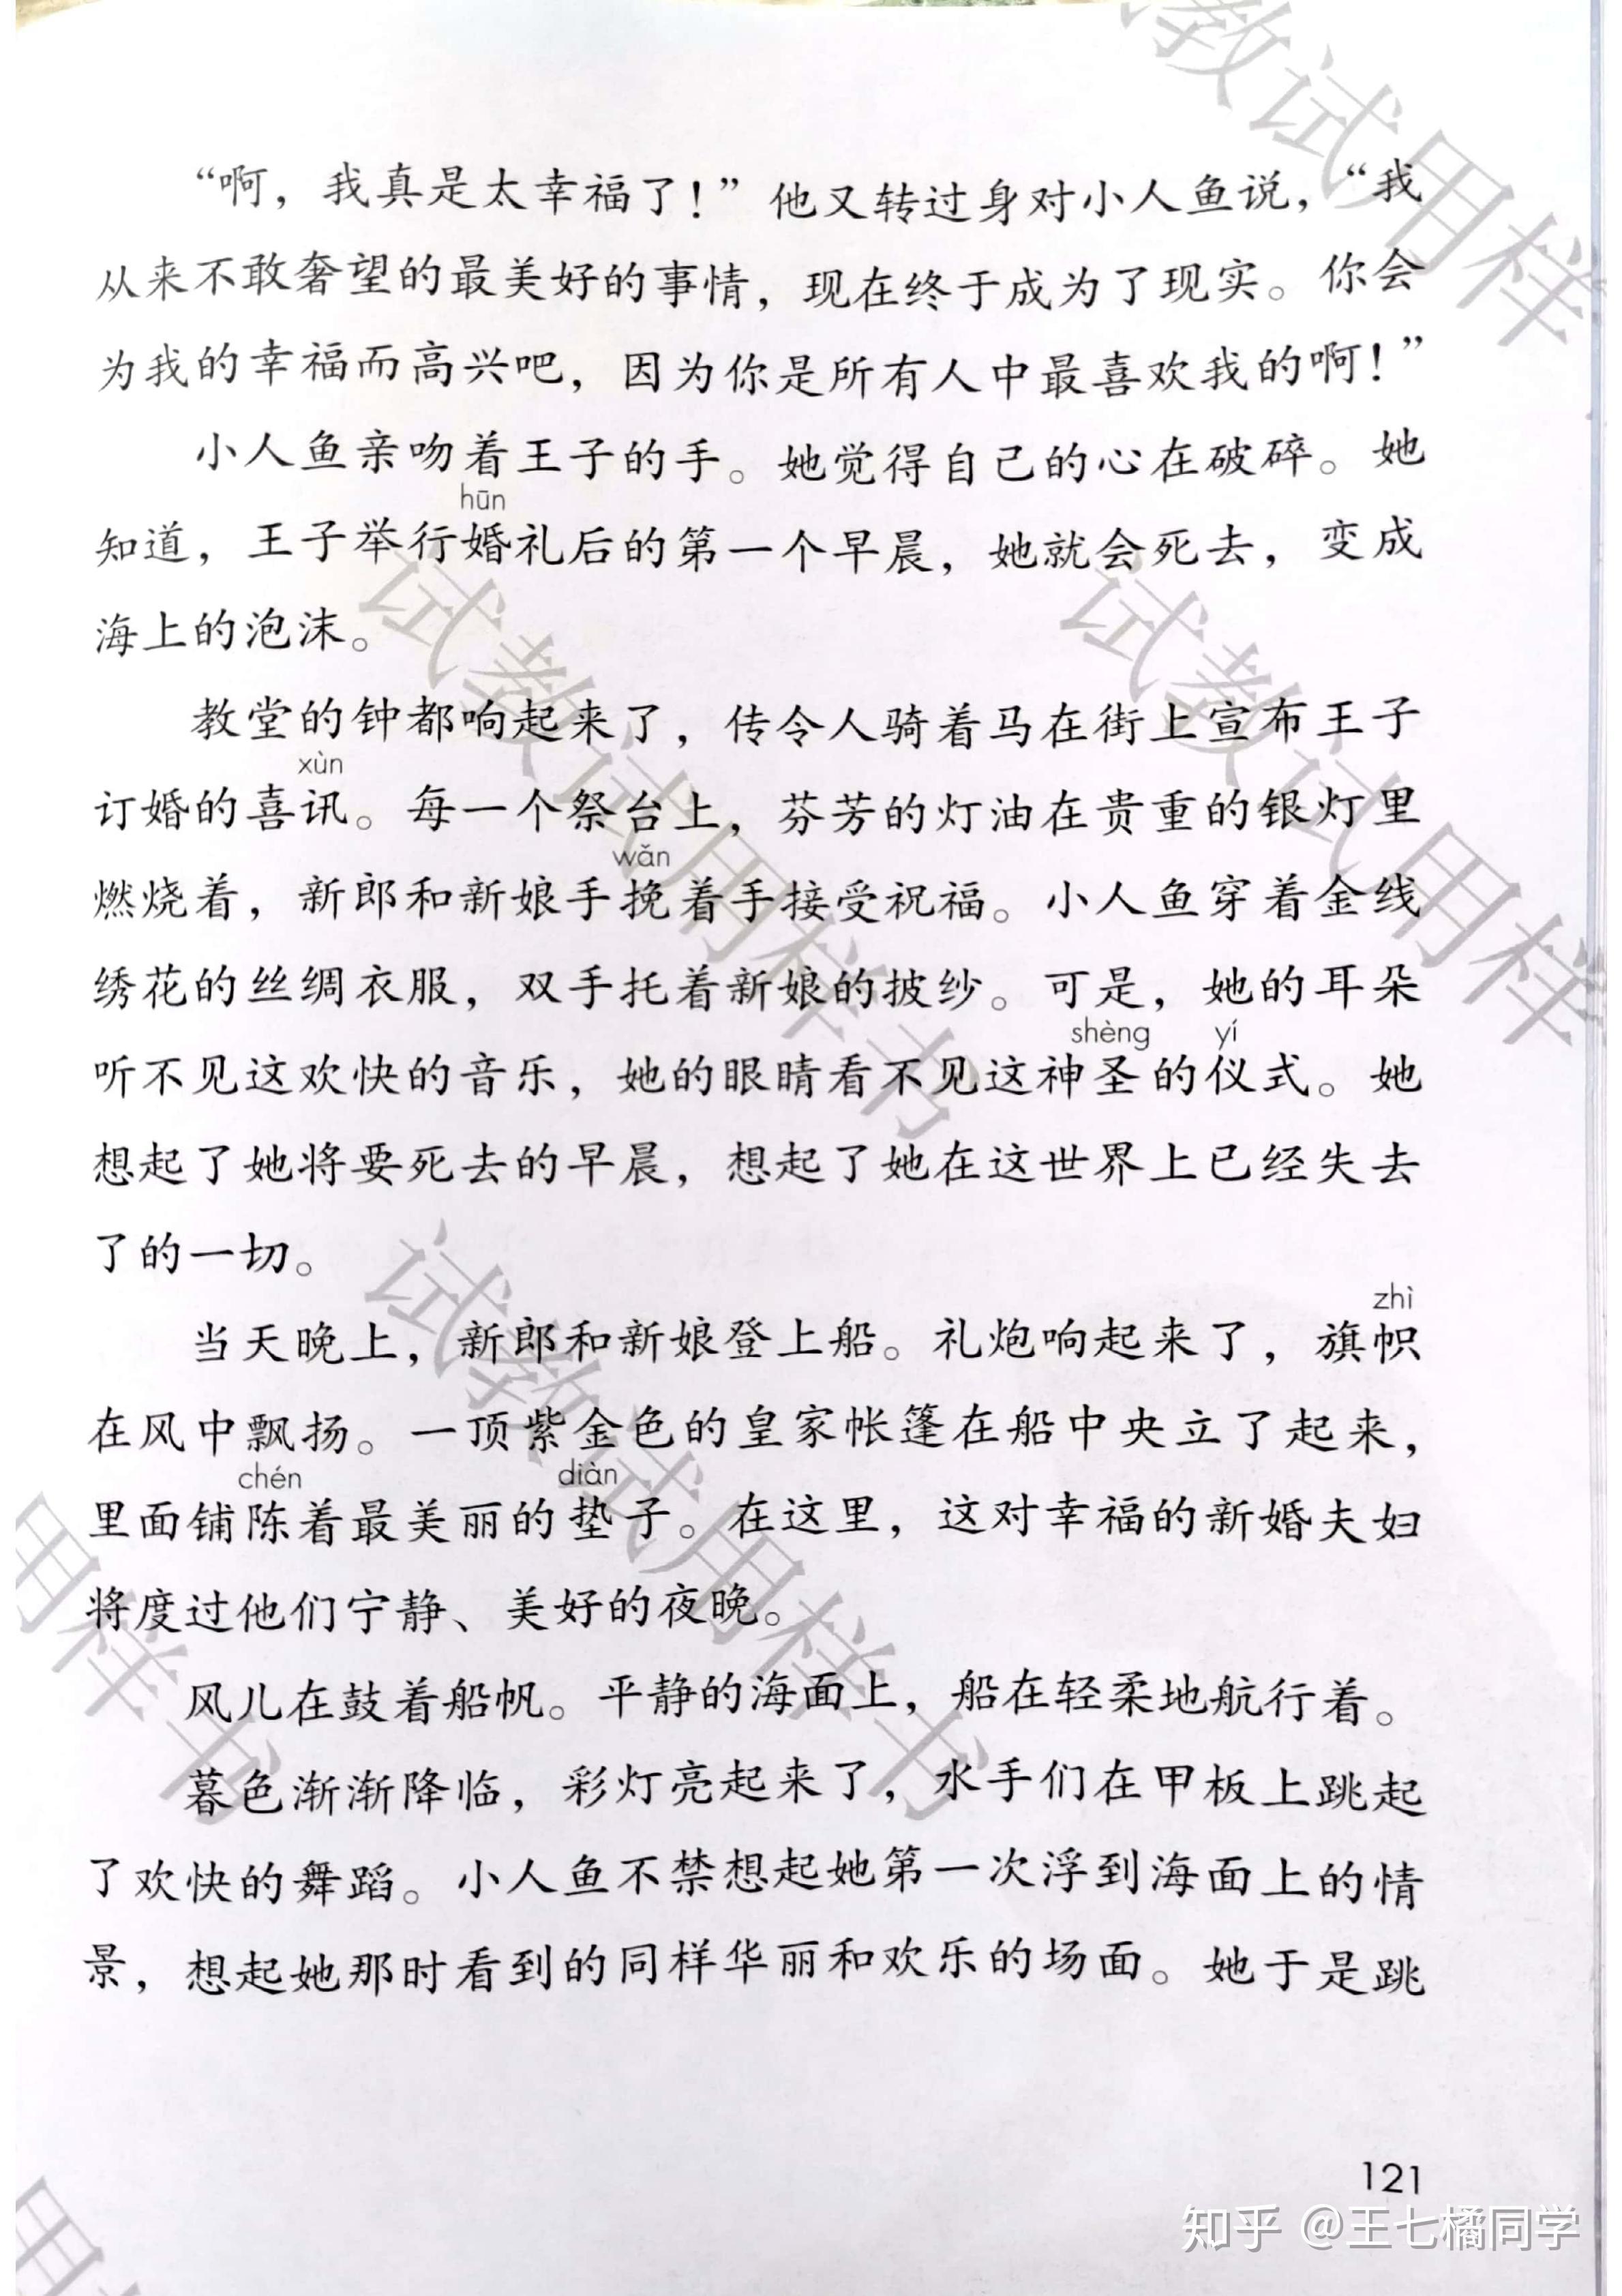 教试用样
“啊，我真是太幸福了！”他又转过身对小人鱼说，“我
从来不敢奢望的最美好的事情，现在终于成为了现实。你会
为我的幸福而高兴吧，因为你是所有人中最喜欢我的啊！”
小人鱼亲吻着王子的手。她觉得自己的心在破碎。她
hūn
知道，王子举行婚礼后的第一个早晨，她就会死去，变成
海上的泡沫。
试教试用样书
试教试用样
教堂的钟都响起来了，传令人骑着马在街上宣布王子
xùn
订婚的喜讯。每一个祭台上，芬芳的灯油在贵重的银灯里
wǎn
燃烧着，新郎和新娘手挽着手接受祝福。小人鱼穿着金线
绣花的丝绸衣服，双手托着新娘的披纱。可是，她的耳朵
shèng yí
听不见这欢快的音乐，她的眼睛看不见这神圣的仪式。她
想起了她将要死去的早晨，想起了她在这世界上已经失去
了的一切。
试教试用样书
zhì
当天晚上，新郎和新娘登上船。礼炮响起来了，旗帜
在风中飘扬。一顶紫金色的皇家帐篷在船中央立了起来，
chén diàn
里面铺陈着最美丽的垫子。在这里，这对幸福的新婚夫妇
将度过他们宁静、美好的夜晚。
用样书
风儿在鼓着船帆。平静的海面上，船在轻柔地航行着。
暮色渐渐降临，彩灯亮起来了，水手们在甲板上跳起
了欢快的舞蹈。小人鱼不禁想起她第一次浮到海面上的情
景，想起她那时看到的同样华丽和欢乐的场面。她于是跳
121
知乎 @王七橘同学